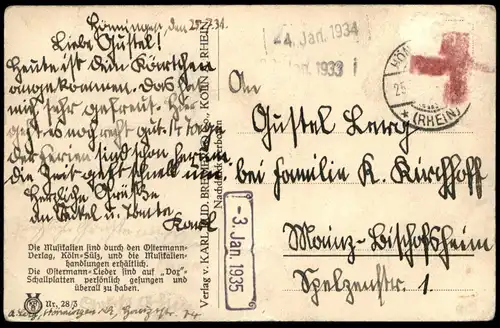 Hönningen, den 25.7.34.
Liebe Gustel!
Heute ist dein Kärtchen
angekommen. Das hat
mich sehr gefreut. Hier
geht es noch recht gut. 14 Tage
der Ferien sind schon herum
die Zeit geht schnell um.
Herzliche Grüße
an Onkel u. Tante
Karl
Die Musikalien sind durch den Ostermann-
Verlag, Köln-Sülz, und die Musikalien-
handlungen erhältlich.
Die Ostermann-Lieder sind auf „Vox"-
Schallplatten persönlich gesungen und
überall zu haben.
Nr. 28/3
Verlag v. KARL FRID. BREUER KÖLN A. RHEIN
Nachdruck verboten
4. Jan. 1934
Jan. 1933
-3. Jan. 1935
(RHEIN)
An
Gustel
bei Familie K. Kirchhoff
Mainz-Bischofsheim
Spelzenstr. 1